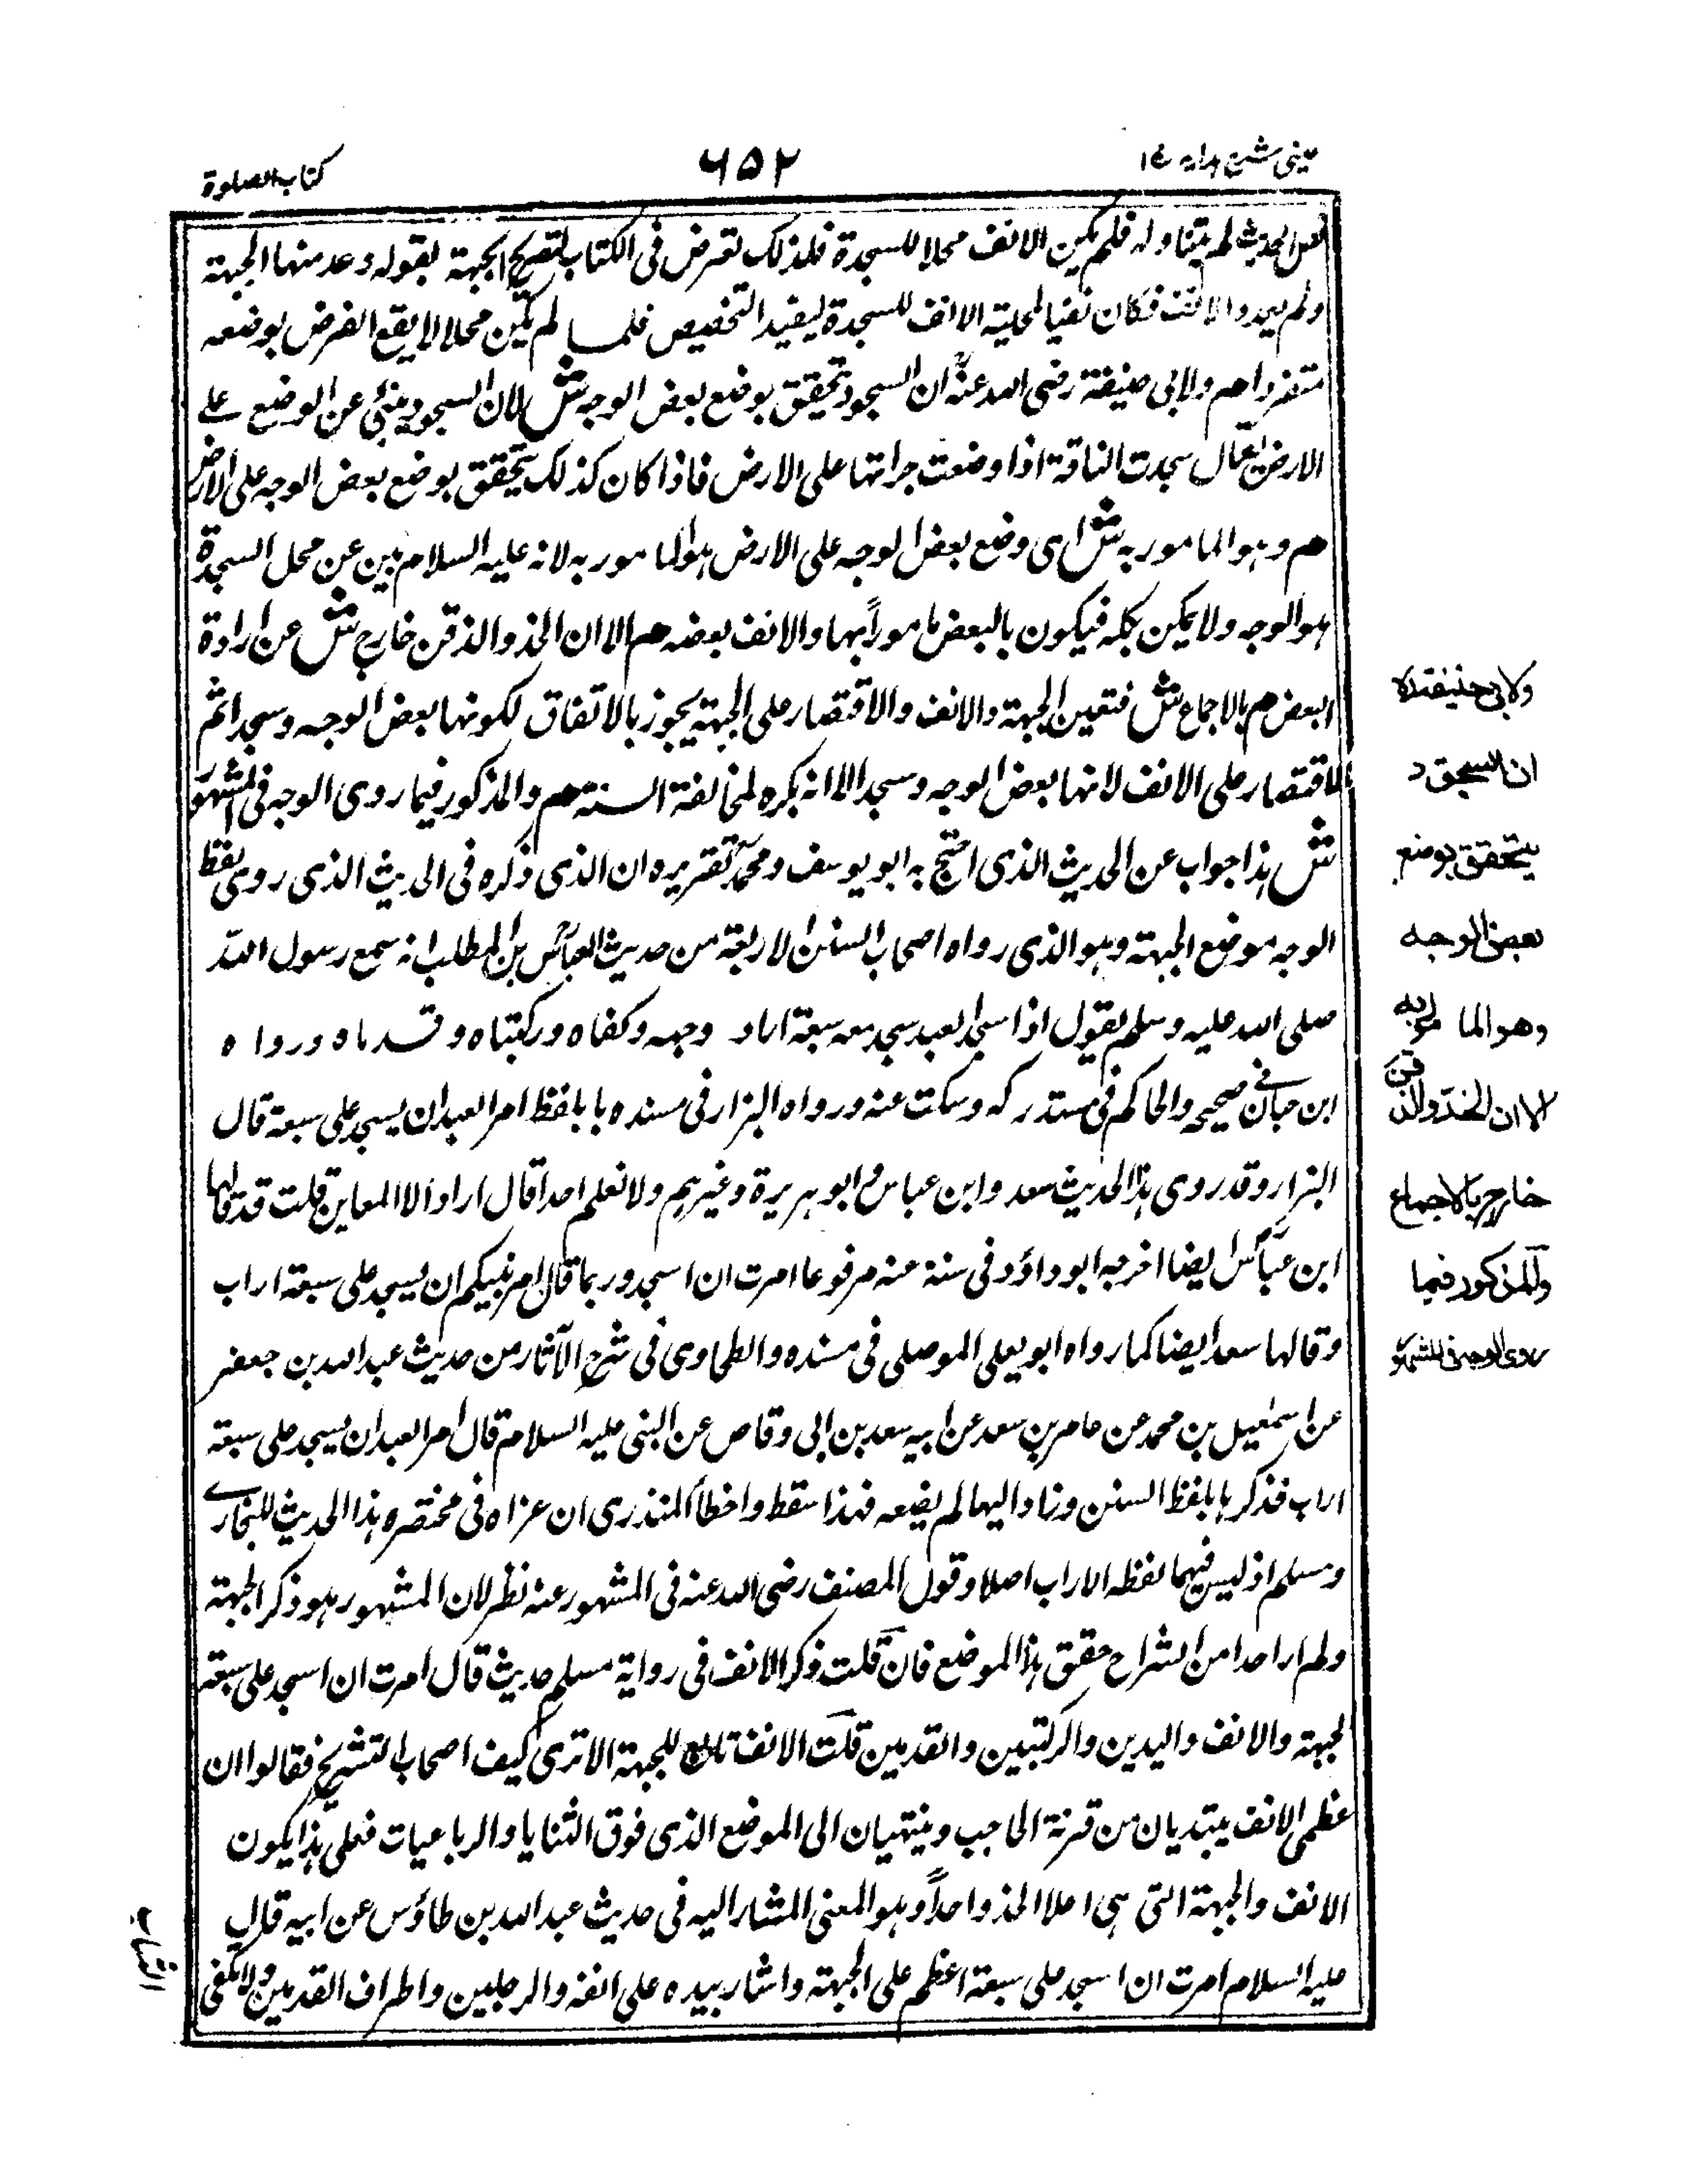 عینی شرح ہدایہ ج ۱
۶۵۲
کتاب الصلوة
الحدیث لم یتناوله فلم یکن الانف محلا للسجدة فلذلک تعرض فی الکتاب لتصریح الجبهة بقوله وعد منها الجبهة
ولم یعدوا الانف فکان نفیا لمحلیة الانف للسجدة لیفید التخصیص فلما لم یکن محلا لا یقع الفرض بوضعه
متفردا هم ولابی حنیفة رضی الله عنه ان السجود یتحقق بوضع بعض الوجه ش لان السجود ینبئ عن الوضع علے
الارض یقال سجدت الناقة اذا وضعت جرانها علی الارض فاذا کان کذلک یتحقق بوضع بعض الوجه علی الارض
هم وهو المامور به ش ای وضع بعض الوجه علی الارض هو المامور به لانه علیه السلام بین عن محل السجدة
هو الوجه ولا یمکن بکله فیکون بالبعض مامورا بها والانف بعضه هم الا ان الخذ والذقن خارج ش عن ارادة
البعض هم بالاجماع ش فتعین الجبهة والانف والاقتصار علی الجبهة یجوز بالاتفاق لکونها بعض الوجه وسجدا ثم
الاقتصار علی الانف لانها بعض الوجه وسجد الا انه یکره لمخالفة السنة هم والمذکور فیما روی الوجه فی المشهور
ش هذا جواب عن الحدیث الذی احتج به ابو یوسف ومحمد تقریره ان الذی ذکره فی الحدیث الذی روی بلفظ
الوجه موضع الجبهة وهو الذی رواه اصحاب السنن الاربعة من حدیث العباس بن المطلب انه سمع رسول الله
صلی الله علیه وسلم یقول اذا سجد العبد سجد معه سبعة اراد وجهه وکفاه ورکبتاه وقدماه ورواه
ابن حبان فی صحیحه والحاکم فی مستدرکه وسکت عنه ورواه البزار فی مسنده بابلفظ امر العبد ان یسجد علی سبعة قال
البزار وقد روی هذا الحدیث سعد وابن عباس وابو هریرة وغیرهم ولا نعلم احدا قال اراد الا المعاین قلت قد قالها
ابن عباس ایضا اخرجه ابو داؤد فی سننه عنه مرفوعا امرت ان اسجد وربما قال امر نبیکم ان یسجد علی سبعة اراب
وقالها سعد ایضا کما رواه ابو یعلی الموصلی فی مسنده والطحاوی فی شرح الآثار من حدیث عبد الله بن جعفر
عن اسمٰعیل بن محمد عن عامر بن سعد عن ابیه سعد بن ابی وقاص عن النبی علیه السلام قال امر العبد ان یسجد علی سبعة
اراب فذکرها بلفظ السنن وزاد ایها لم یضعه فهذا سقط واخطأ المنذری ان عزاه فی مختصره هذا الحدیث للبخارے
ومسلم اذ لیس فیهما لفظة الاراب اصلا وقول المصنف رضی الله عنه فی المشهور عنه نظر لان المشهور هو ذکر الجبهة
ولم ار احدا من الشراح حقق هذا الموضع فان قلت ذکر الانف فی روایة مسلم حدیث قال امرت ان اسجد علی سبعة
لجبهة والانف والیدین والرکبتین والقدمین قلت الانف تابع للجبهة الا تری کیف اصحاب التشریح فقالوا ان
عظمی الانف یبتدیان من قرنة الحاجب وینتهیان الی الموضع الذی فوق الثنایا والرباعیات فعلی هذا یکون
الانف والجبهة التی هی اعلا الخذ واحدا وهو المعنی المشار الیه فی حدیث عبد الله بن طاؤس عن ابیه قال
علیه السلام امرت ان اسجد علی سبعة اعظم علی الجبهة واشار بیده علی انفه والرجلین واطراف القدمین ولا نکفی
ولابی حنیفة رہ
ان السجود
یتحقق بوضع
بعض الوجه
وهو المامور به
الا ان الخد والذقن
خارج بالاجماع
والمذکور فیما
روی الوجه فی المشهور
الثیاب